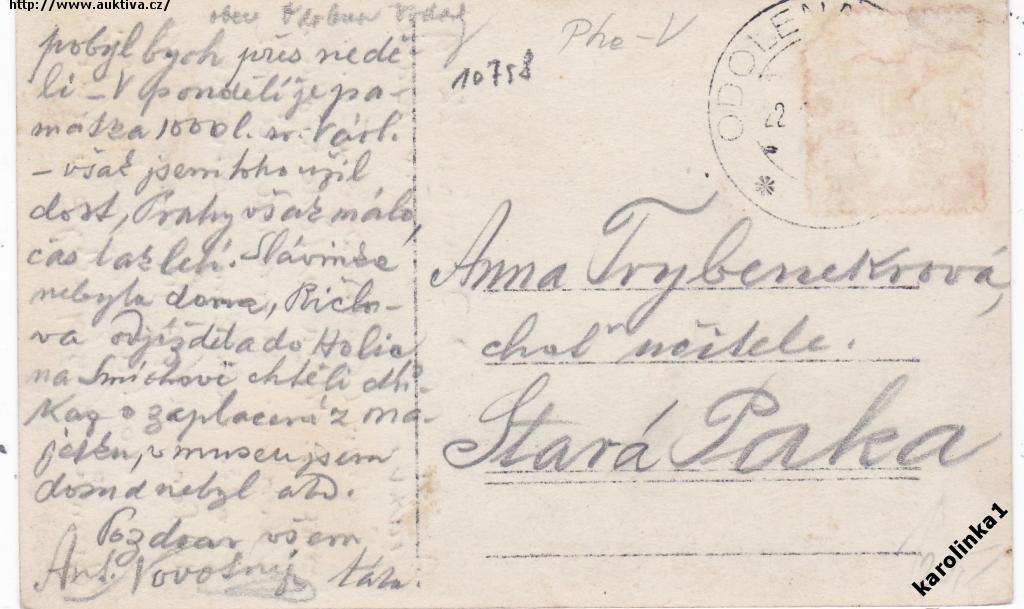 http://www.auktiva.cz/
obec Odolena Voda
Pho-V
10758
ODOLENA
22
pobyl bych přes nedě-
li – V pondělí je pa-
mátka 1000 l. sv. Václ.
– však jsem toho užil
dost, Prahy však málo,
čas 
nebyla doma,
va odjížděla do Holic
na Smíchově chtěli dů-
kaz o zaplacená z ma-
jetku, v museu jsem
doma nebyl atd.
Pozdrav všem
Ant. Novotný táta.
Anna Trybenekrová,
choť učitele.
Stará Paka
karolinka1